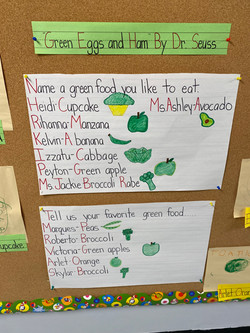 "Green Eggs and Ham" By Dr. Seuss
Name a green food you like to eat.
Heidi Cupcake Ms. Ashley-Avocado
Rihanna-Manzana
Kelvin-A banana
Izzatu-Cabbage
Peyton-Green apple
Ms. Jackie Broccoli Rabe
Tell us your favorite green food
Marques-Peas
Roberto-Broccoli
Victoria-Green apples
Arlet-Orange
Skylar-Broccoli
Cupcake